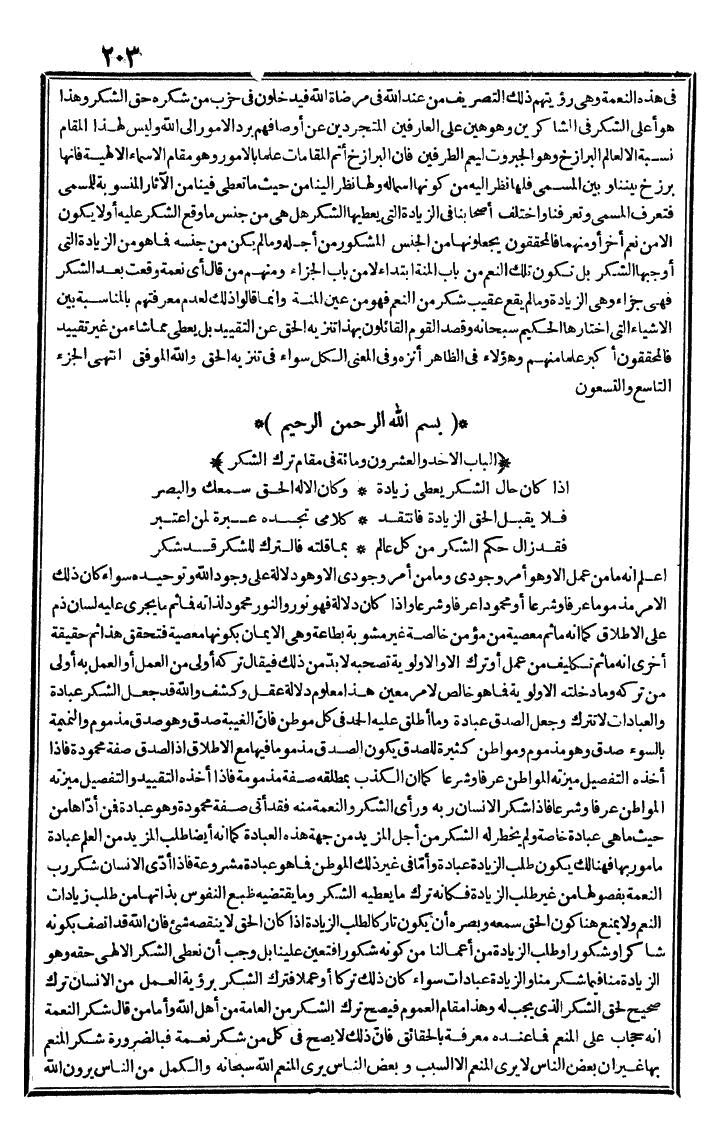 ٢٠٣
فى هذه النعمة وهى رؤيتهم ذلك التصريف من عند الله فى مرضاة الله فيدخلون فى حزب من شكره حق الشكر وهذا
هو أعلى الشكر فى الشاكرين وهو هين على العارفين المتجردين عن أوصافهم برد الامور الى الله وليس لهذا المقام
نسبة الا لعالم البرازخ وهو الجبروت ليعم الطرفين فان البرازخ أتم المقامات علما بالامور وهو مقام الاسماء الالهية فانها
برزخ بيننا وبين المسمى فلها نظر اليه من كونها اسماله ولها نظر الينا من حيث ما تعطى فينا من الآثار المنسوبة للمسمى
فتعرف المسمى وتعرفنا واختلف أصحابنا فى الزيادة التى يعطيها الشكر هل هى من جنس ما وقع الشكر عليه أو لا يكون
الا من نعم أخر أو منهما فالمحققون يجعلونها من الجنس المشكور من أجله وما لم يكن من جنسه فما هو من الزيادة التى
أوجبها الشكر بل تكون تلك النعم من باب المنة ابتداء لا من باب الجزاء ومنهم من قال أى نعمة وقعت بعد الشكر
فهى جزاء وهى الزيادة وما لم يقع عقيب شكر من النعم فهو من عين المنة وانما قالوا ذلك لعدم معرفتهم بالمناسبة بين
الاشياء التى اختارها الحكيم سبحانه وقصد القوم القائلون بهذا تنزيه الحق عن التقييد بل يعطى مما شاء من غير تقييد
فالمحققون أكبر علما منهم وهؤلاء فى الظاهر أنزه وفى المعنى الكل سواء فى تنزيه الحق والله الموفق انتهى الجزء
التاسع والتسعون
*( بسم الله الرحمن الرحيم )*
*(الباب الاحد والعشرون ومائة فى مقام ترك الشكر)*
اذا كان حال الشكر يعطى زيادة * وكان الاله الحق سمعك والبصر
فلا يقبل الحق الزيادة فانتقد * كلامى تجده عبرة لمن اعتبر
فقد زال حكم الشكر من كل عالم * بما قلته فالترك للشكر قد شكر
اعلم انه ما من عمل الا وهو أمر وجودى وما من أمر وجودى الا وهو دلالة على وجود الله وتوحيده سواء كان ذلك
الامر مذموما عرفا وشرعا أو محمودا عرفا وشرعا واذا كان دلالة فهو نور والنور محمود لذاته فما ثم ما يجرى عليه لسان ذم
على الاطلاق كما انه ما ثم معصية من مؤمن خالصة غير مشوبة بطاعة وهى الايمان بكونها معصية فتحقق هذا ثم حقيقة
أخرى انه ما ثم تكليف من عمل أو ترك الا والاولوية تصحبه لا بدّ من ذلك فيقال تركه أولى من العمل أو العمل به أولى
من تركه وما دخلته الاولوية فما هو خالص لامر معين هذا معلوم دلالة عقل وكشف والله قد جعل الشكر عبادة
والعبادات لا تترك وجعل الصدق عبادة وما أطلق عليه الحد فى كل موطن فانّ الغيبة صدق وهو صدق مذموم والنميمة
بالسوء صدق وهو مذموم ومواطن كثيرة للصدق يكون الصدق مذموما فيها مع الاطلاق اذ الصدق صفة محمودة فاذا
أخذه التفصيل ميزته المواطن عرفا وشرعا كما ان الكذب بمطلقه صفة مذمومة فاذا أخذه التقييد والتفصيل ميزته
المواطن عرفا وشرعا فاذا شكر الانسان ربه ورأى الشكر والنعمة منه فقد أتى صفة محمودة وهو عبادة فمن أدّاها من
حيث ما هى عبادة خاصة ولم يخطر له الشكر من أجل المزيد من جهة هذه العبادة كما انه أيضا طلب المزيد من العلم عبادة
مامور بها فهنالك يكون طلب الزيادة عبادة وأمّا فى غير ذلك الموطن فما هو عبادة مشروعة فاذا أدّى الانسان شكر رب
النعمة بفصولها من غير طلب الزيادة فكانه ترك ما يعطيه الشكر وما يقتضيه طبع النفوس بذاتها من طلب زيادات
النعم ولا يمنع هنا كون الحق سمعه وبصره أن يكون تاركا لطلب الزيادة اذا كان الحق لا ينقصه شئ فان الله قد اتصف بكونه
شاكرا وشكورا وطلب الزيادة من أعمالنا من كونه شكورا فتعين علينا بل وجب أن نعطى الشكر الالهى حقه وهو
الزيادة منا فيما شكر منا والزيادة عبادات سواء كان ذلك تركا أو عملا فترك الشكر برؤية العمل من الانسان ترك
صحيح لحق الشكر الذى يجب له وهذا مقام العموم فيصح ترك الشكر من العامة من أهل الله وأما من قال شكر النعمة
انه حجاب على المنعم فما عنده معرفة بالحقائق فانّ ذلك لا يصح فى كل من شكر نعمة فبالضرورة شكر المنعم
بها غير ان بعض الناس لا يرى المنعم الا السبب وبعض الناس يرى المنعم الله سبحانه والكمل من الناس يرون الله